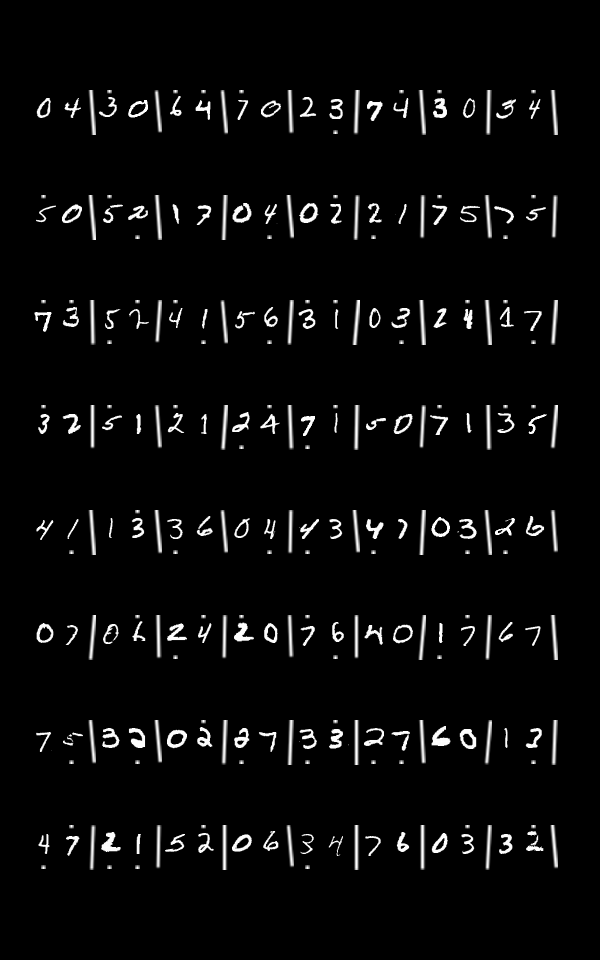 0 4 | 3̇ 0 | 6̇ 4̇ | 7̇ 0 | 2 3̣ | 7 4̇ | 3̇ 0 | 3 4̇ |
5̇ 0 | 5̇ 2̣ | 1 7 | 0 4̣ | 0 2̇ | 2̣̇ 1 | 7̇ 5 | 7̣ 5̇ |
7̇ 3̇ | 5̇ 2̇ | 4̇ 1̣ | 5 6̣̇ | 3̇ 1̇ | 0 3̣ | 2 4̣̇ | 1̇ 7̣ |
3̇ 2 | 5̇ 1 | 2̇ 1 | 2̣ 4̣ | 7̣ 1̇ | 5 0 | 7̇ 1 | 3̇ 5̇ |
4 1̣ | 1 3̇ | 3̣ 6 | 0 4̣ | 4̣ 3 | 4̣ 7 | 0 3̣̇ | 2̣ 6 |
0 7 | 0 6̇ | 2̣ 4̇ | 2̇ 0 | 7̇ 6̇ | 4 0 | 1̣ 7̇ | 6 7 |
7 5̣ | 3 2̣ | 0 2̇ | 2̣ 7 | 3̣ 3̣̇ | 2̣ 7̣ | 6̣ 0 | 1 3̣ |
4̣ 7̇ | 2̣ 1̣ | 5 2̇ | 0 6 | 3̣ 4 | 7 6 | 0 3̇ | 3 2̇ |